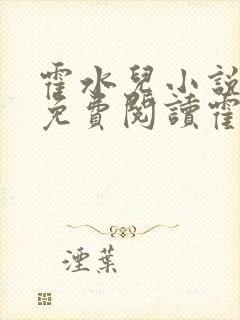 霍水兒小說
免費閱讀霍
湮葉